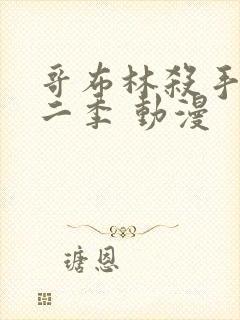 哥布林殺手
二季 動漫
瑭恩